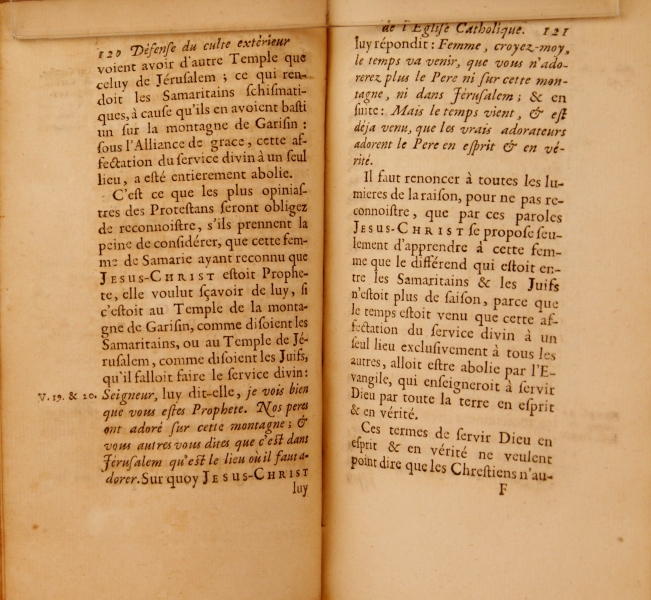 120 Défense du culte extérieur
voient avoir d'autre Temple que
celuy de Jérusalem ; ce qui ren-
doit les Samaritains schismati-
ques, à cause qu'ils en avoient basti
un sur la montagne de Garisin :
sous l'Alliance de grace, cette af-
fectation du service divin à un seul
lieu, a esté entierement abolie.
C'est ce que les plus opinias-
tres des Protestans seront obligez
de reconnoistre, s'ils prennent la
peine de considérer, que cette fem-
me de Samarie ayant reconnu que
JESUS-CHRIST estoit Prophe-
te, elle voulut sçavoir de luy, si
c'estoit au Temple de la monta-
gne de Garisin, comme disoient les
Samaritains, ou au Temple de Jé-
rusalem, comme disoient les Juifs,
qu'il falloit faire le service divin:
V. 19. & 20. Seigneur, luy dit-elle, je vois bien
que vous estes Prophete. Nos peres
ont adoré sur cette montagne ; &
vous autres vous dites que c'est dans
Jérusalem qu'est le lieu où il faut a-
dorer. Sur quoy JESUS-CHRIST
luy
de l'Eglise Catholique. 121
luy répondit : Femme, croyez-moy,
le temps va venir, que vous n'ado-
rerez plus le Pere ni sur cette mon-
tagne, ni dans Jérusalem ; & en
suite : Mais le temps vient, & est
déja venu, que les vrais adorateurs
adorent le Pere en esprit & en vé-
rité.
Il faut renoncer à toutes les lu-
mieres de la raison, pour ne pas re-
connoistre, que par ces paroles
JESUS-CHRIST se propose seu-
lement d'apprendre à cette fem-
me que le différend qui estoit en-
tre les Samaritains & les Juifs
n'estoit plus de saison, parce que
le temps estoit venu que cette af-
fectation du service divin à un
seul lieu exclusivement à tous les
autres, alloit estre abolie par l'E-
vangile, qui enseigneroit à servir
Dieu par toute la terre en esprit
& en vérité.
Ces termes de servir Dieu en
esprit & en vérité ne veulent
point dire que les Chrestiens n'au-
F